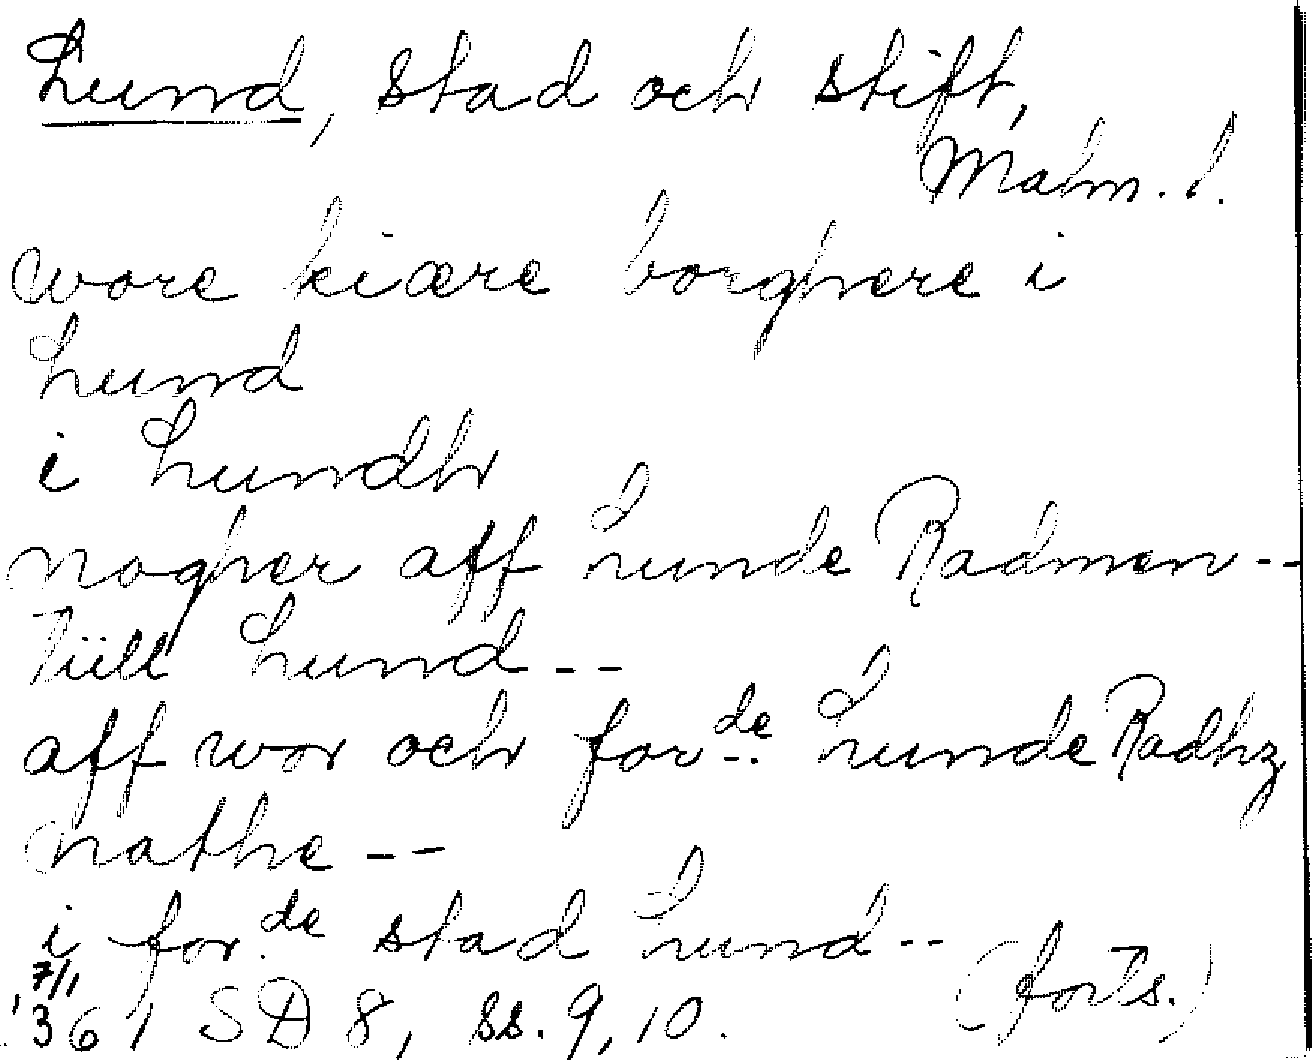 Lund, stad och stift,
Malm. l.
wore kiære borghere i
Lund
i Lundh
nogher aff Lunde Radmen --
Tiill Lund --
aff wor och for de Lunde Radhz
nathe --
i for de stad Lund --
(forts.)
7/1
'361 SD 8, ss. 9, 10.